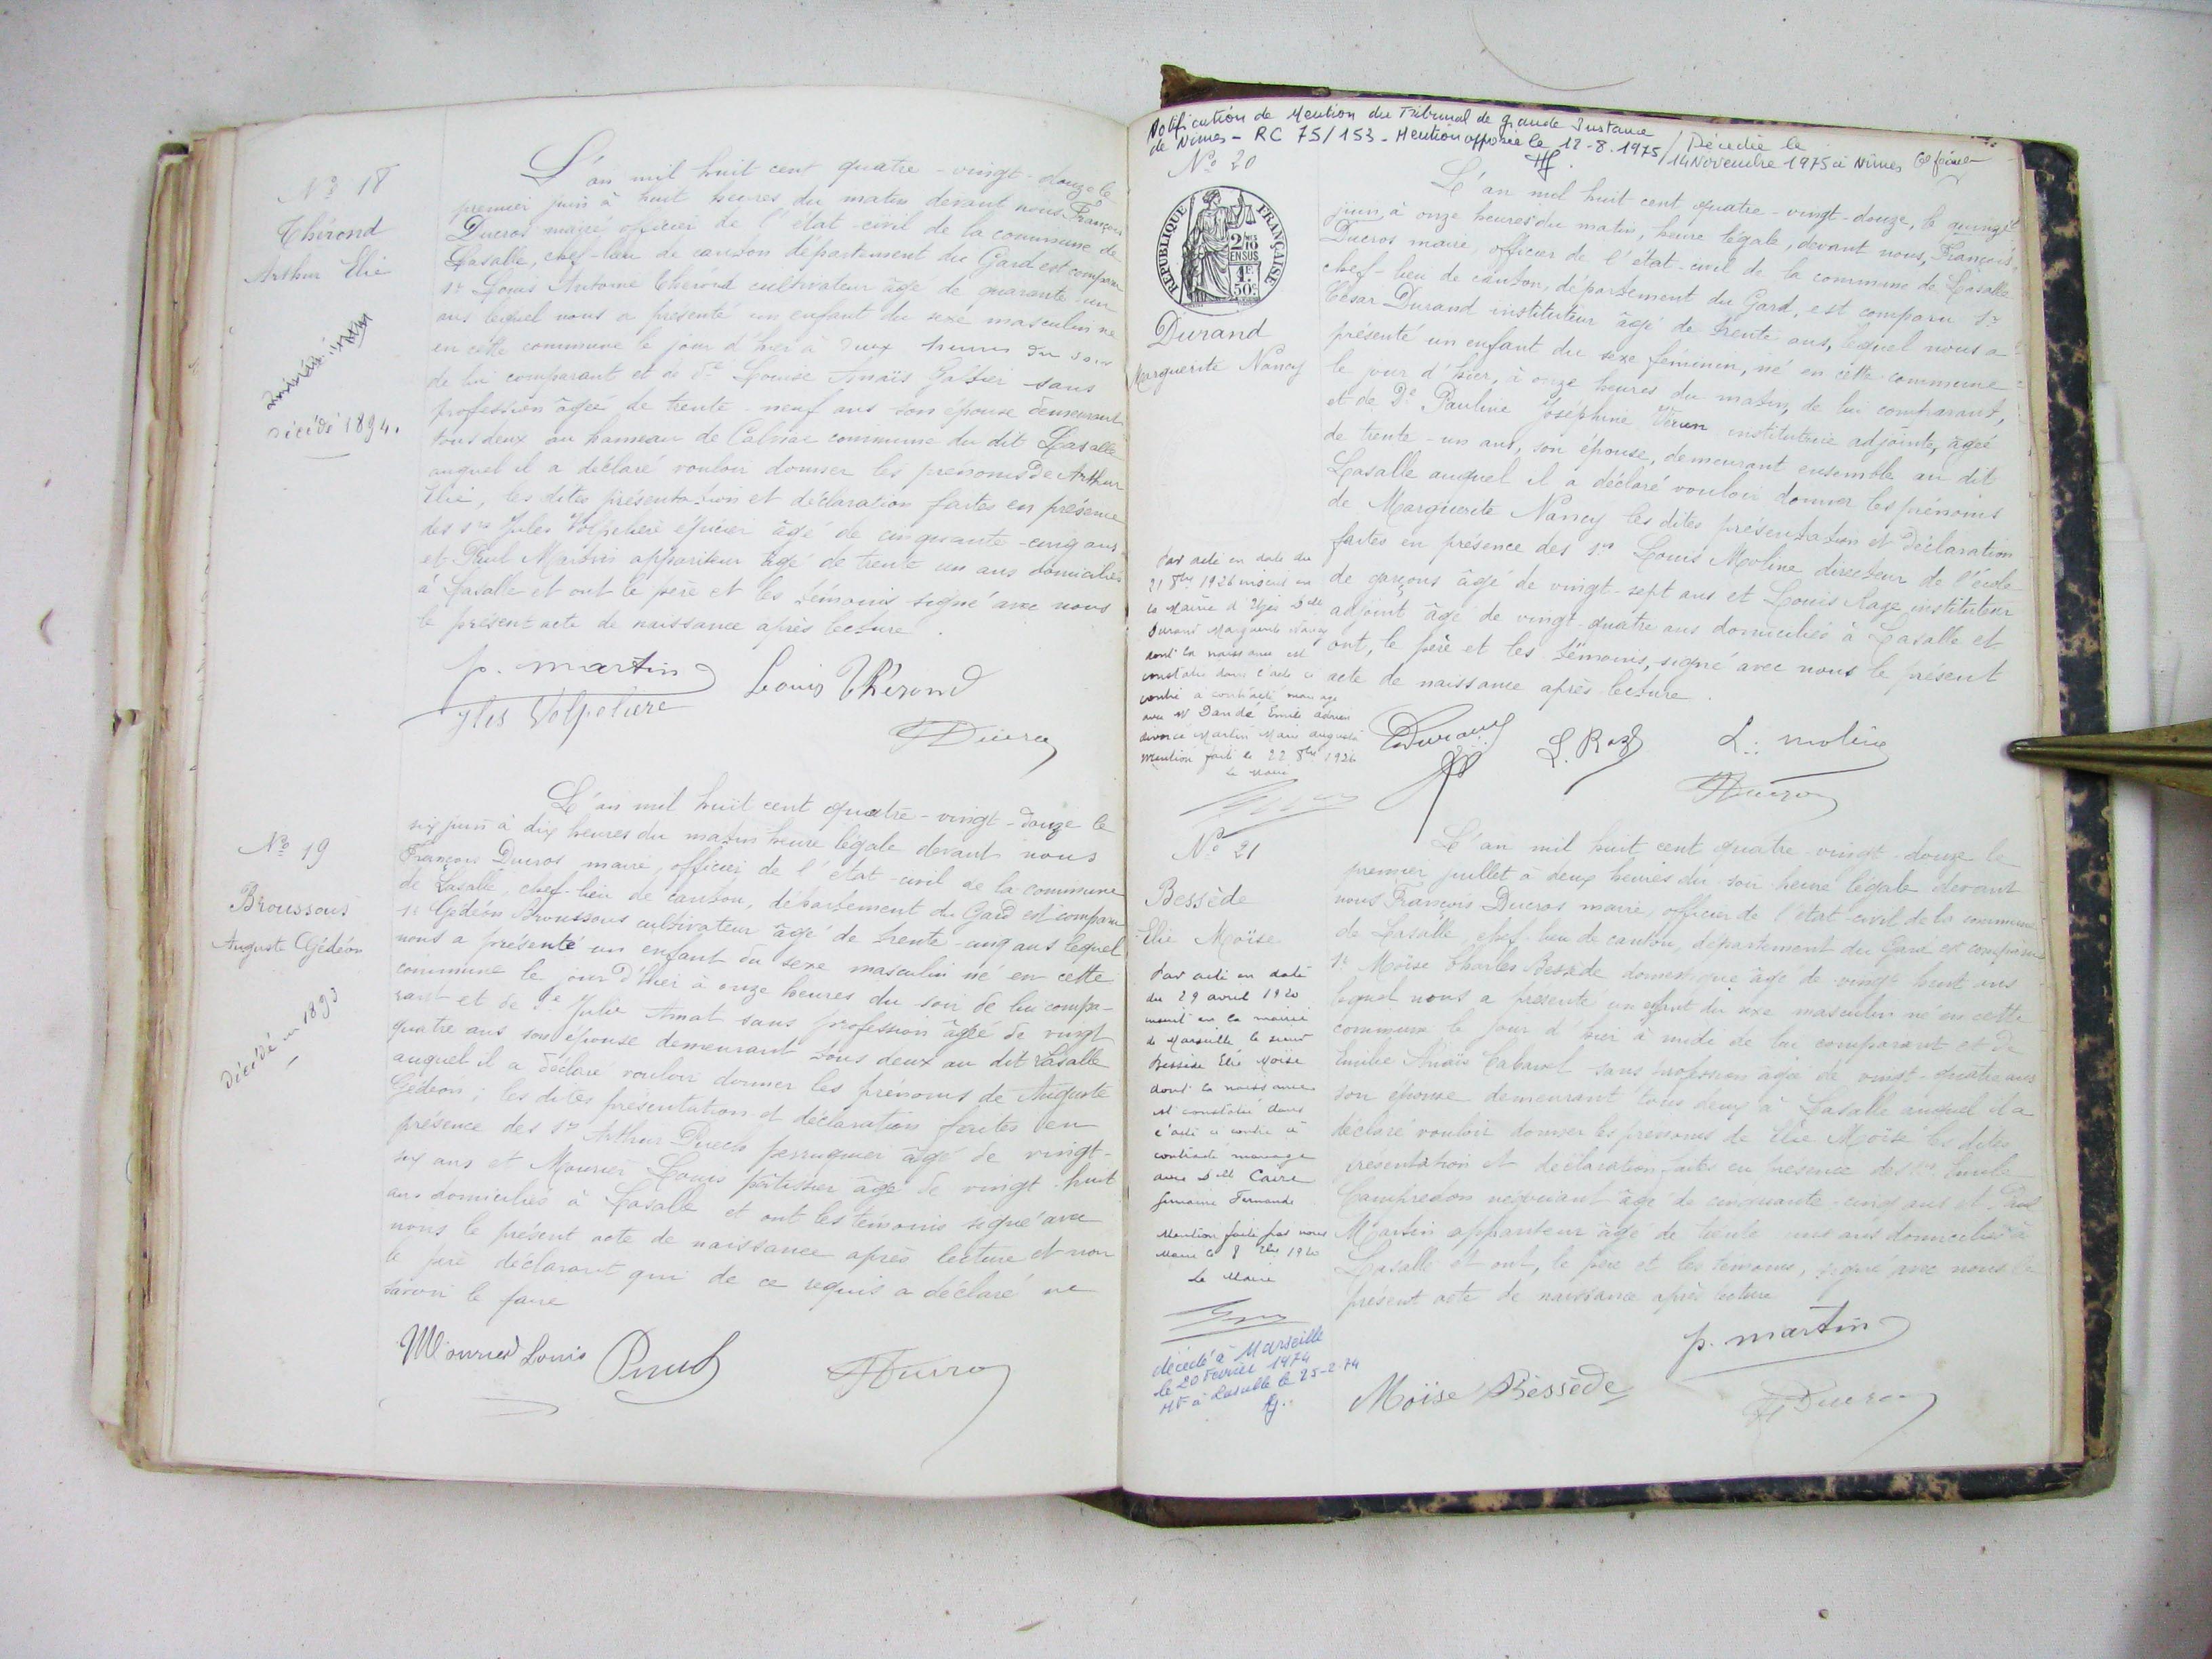 N° 18
Thérond
Arthur Elie
Décédé 1894.
L'an mil huit cent quatre-vingt-douze le
premier juin à huit heures du matin devant nous François
Ducros maire officier de l'état-civil de la commune de
Lasalle, chef-lieu de canton département du Gard est comparu
Sr Louis Antoine Thérond cultivateur âgé de quarante-un
ans lequel nous a présenté un enfant du sexe masculin né
en cette commune le jour d'hier à deux heures du soir
de lui comparant et de De Louise Anaïs sans
profession âgée de trente-neuf ans son épouse demeurant
tous deux au hameau de Calviac commune du dit Lasalle
auquel il a déclaré vouloir donner les prénoms de Arthur
Elie, les dites présentation et déclaration faites en présence
des srs Jules Volpelière épicier âgé de cinquante-cinq ans
et Paul Martin appariteur âgé de trente un ans domiciliés
à Lasalle et ont le père et les témoins signé avec nous
le présent acte de naissance après lecture.
p. martin Louis Thérond
Jles Volpeliere
Ducros
N° 19
Broussous
Auguste Gédéon
Décédé en 1893
L'an mil huit cent quatre-vingt-douze le
six juin à dix heures du matin heure légale devant nous
François Ducros maire, officier de l'état-civil de la commune
de Lasalle, chef-lieu de canton, département du Gard est comparu
Sr Gédéon Broussous cultivateur âgé de trente-cinq ans lequel
nous a présenté un enfant du sexe masculin né en cette
commune le jour d'hier à onze heures du soir de lui compa-
rant et de De Julie Amat sans profession âgée de vingt
quatre ans son épouse demeurant tous deux au dit Lasalle
auquel il a déclaré vouloir donner les prénoms de Auguste
Gédéon; les dites présentation et déclaration faites en
présence des srs Arthur Puech perruquier âgé de vingt-
six ans et Mourier Louis pâtissier âgé de vingt-huit
ans domiciliés à Lasalle et ont les témoins signé avec
nous le présent acte de naissance après lecture et non
le père déclarant qui de ce requis a déclaré ne
savoir le faire
Mourier Louis Puech Ducros
Notification de Mention du Tribunal de grande Instance
de Nimes - RC 75/153 - Mention apposée le 12-8.1975 / Décédée le
14 Novembre 1975 à Nîmes
N° 20
REPUBLIQUE FRANÇAISE
2/10 EN SUS
1F. 50c.
Durand
Marguerite Nancy
L'an mil huit cent quatre-vingt-douze, le quinze
juin, à onze heures du matin, heure légale, devant nous, François
Ducros maire, officier de l'état-civil de la commune de Lasalle
chef-lieu de canton, département du Gard, est comparu Sr
César Durand instituteur âgé de trente ans, lequel nous a
présenté un enfant du sexe féminin, né en cette commune
le jour d'hier, à onze heures du matin, de lui comparant,
et de De Pauline Joséphine institutrice adjointe, âgée
de trente-un ans, son épouse, demeurant ensemble au dit
Lasalle auquel il a déclaré vouloir donner les prénoms
de Marguerite Nancy les dites présentation et déclaration
faites en présence des srs Louis Moline directeur de l'école
de garçons âgé de vingt-sept ans et Louis instituteur
adjoint âgé de vingt-quatre ans domiciliés à Lasalle et
ont, le père et les témoins, signé avec nous le présent
acte de naissance après lecture.
Par acte en date du
21 8bre 1926 inscrit en
la Mairie d'Uzès Delle
Durand Marguerite Nancy
dont la naissance est
constatée dans l'acte ci
contre a contracté mariage
avec Mr Dandé Emile Adrien
divorcé Martin Marie Augusta
Mention faite le 22 8bre 1926
Le Maire
Durand L. Moline
Ducros
N° 21
Bessède
Elie Moïse
Par acte en date
du 29 avril 1920
inscrit en la mairie
de Marseille le sieur
Bessède Elie Moïse
dont la naissance
est constatée dans
l'acte ci contre a
contracté mariage
avec Delle Caire
Germaine Fernande
Mention faite par nous
Maire le 8 1920
Le Maire
décédé à Marseille
le 20 Février 1974
Mt à Lasalle le 25-2-74
L'an mil huit cent quatre-vingt-douze le
premier juillet à deux heures du soir heure légale devant
nous François Ducros maire, officier de l'état-civil de la commune
de Lasalle chef-lieu de canton, département du Gard est comparu
Sr Moïse Charles Bessède domestique âgé de vingt-huit ans
lequel nous a présenté un enfant du sexe masculin né en cette
commune le jour d'hier à midi de lui comparant et de
Emilie Anaïs sans profession âgée de vingt-quatre ans
son épouse demeurant tous deux à Lasalle auquel il a
déclaré vouloir donner les prénoms de Elie Moïse les dites
présentation et déclaration faites en présence des srs Emile
Campredon négociant âgé de cinquante-cinq ans et Paul
Martin appariteur âgé de trente un ans domiciliés à
Lasalle et ont, le père et les témoins, signé avec nous le
présent acte de naissance après lecture
p. martin
Moïse Bessède
Ducros